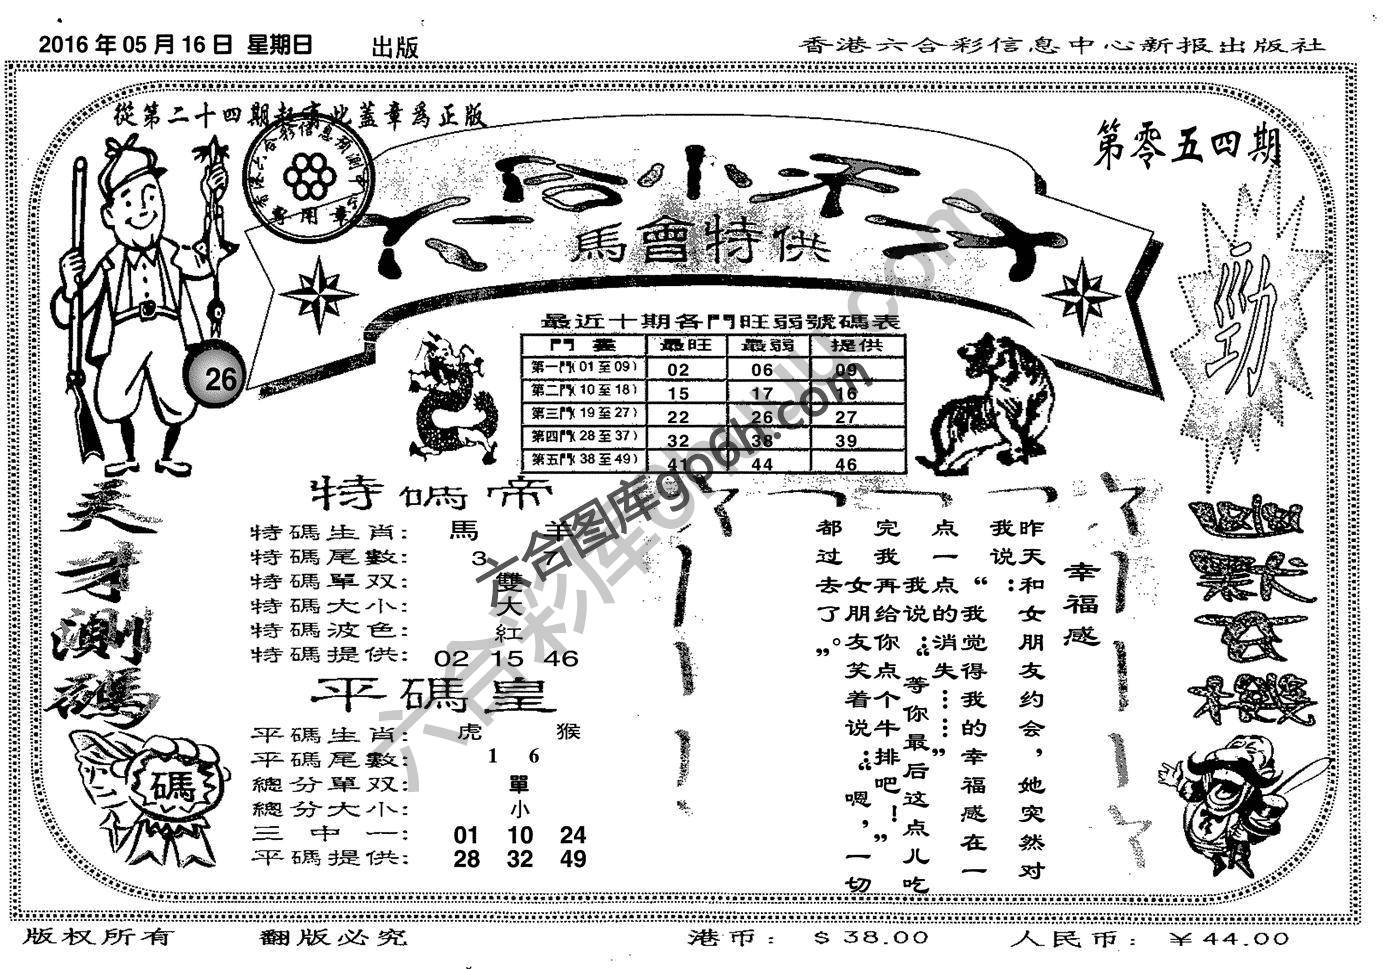 2016 年 05 月 16 日 星期日 出版
香港六合彩信息中心新报出版社
從第二十四期起有此蓋章爲正版
第零五四期
六合小天才
馬會特供
專用章
勁
26
最近十期各門旺弱號碼表
門數 最旺 最弱 提供
第一門(01至09) 02 06 09
第二門(10至18) 15 17 16
第三門(19至27) 22 26 27
第四門(28至37) 32 38 39
第五門(38至49) 41 44 46
天才測碼
碼
特碼帝
特碼生肖: 馬 羊
特碼尾數: 3 7
特碼單双: 雙
特碼大小: 大
特碼波色: 紅
特碼提供: 02 15 46
平碼皇
平碼生肖: 虎 猴
平碼尾數: 1 6
總分單双: 單
總分大小: 小
三中一: 01 10 24
平碼提供: 28 32 49
幸福感
昨天和女朋友约会，她突然对
我说：“我觉得我的幸福感在一
点一点的消失……”
我说：“等你最后这点儿吃
完我再给你点个牛排吧！”
女朋友笑着说：“嗯，一切
都过去了。”
六合图库gp6h.com
六合彩库
版权所有 翻版必究 港币: $38.00 人民币: ￥44.00